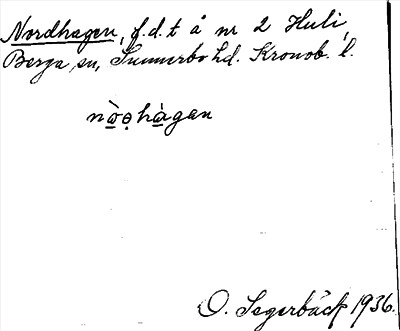 Nordhagen, f.d.t å nr 2 Huli,
Berga sn, Sunnerbo hd. Kronob. l.
nò̱o̱̣hà̱gan
O. Segerbäck 1936.